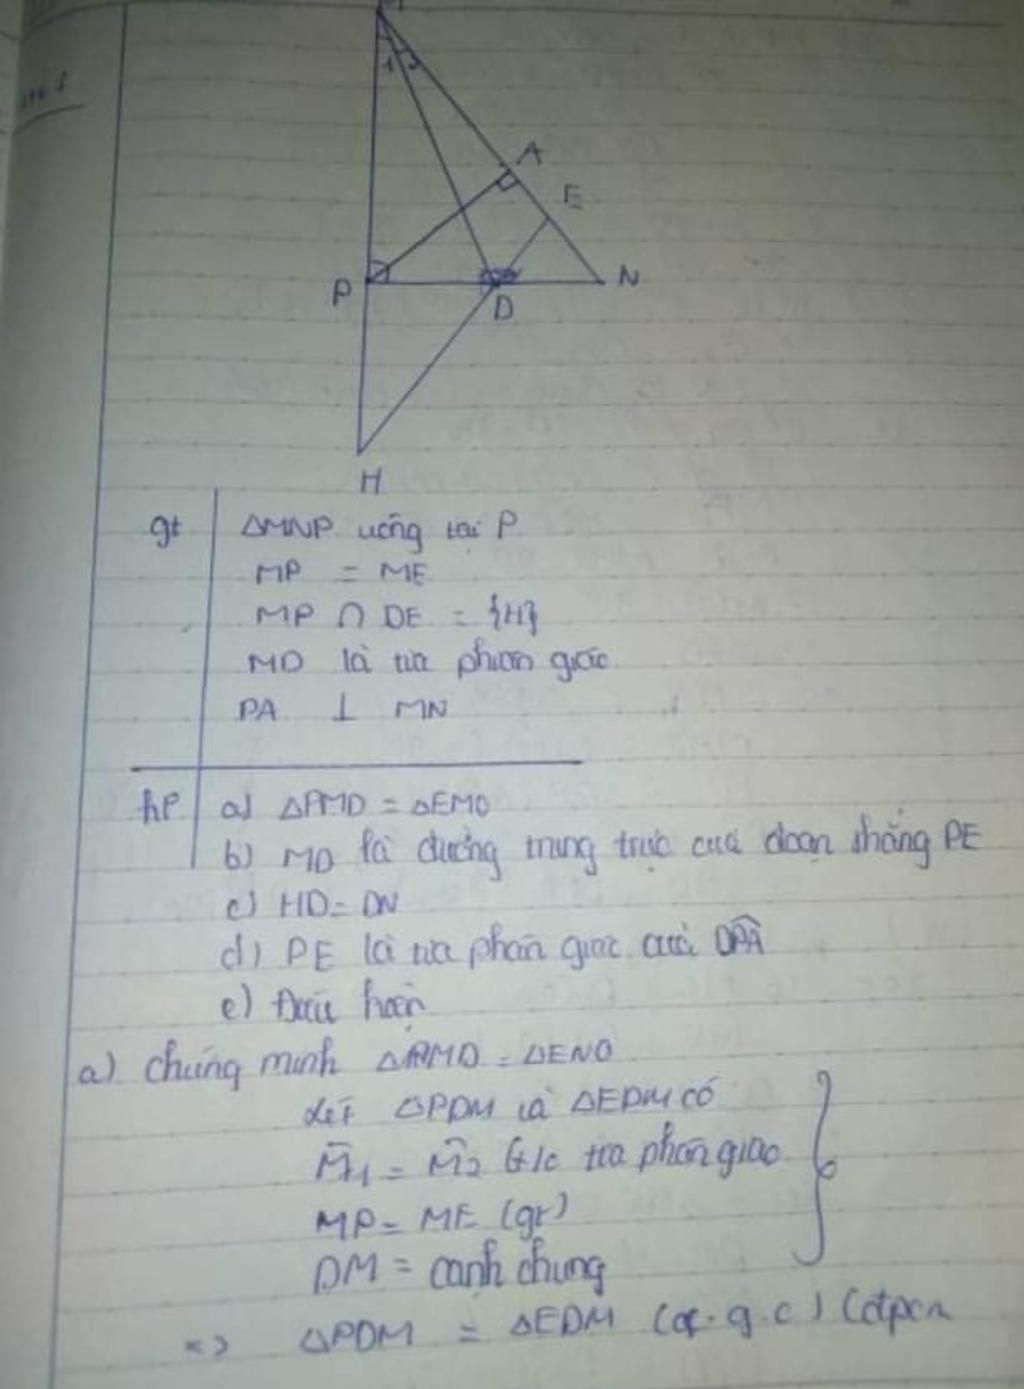 1 2
A
E
P
N
D
H
gt
ΔMNP uông tại P
MP = ME
MP ∩ DE = {H}
MD là tia phân giác
PA ⊥ MN
hP a) ΔPMD = ΔEMD
b) MD là đường trung trực của đoạn thẳng PE
c) HD = DN
d) PE là tia phân giác của DPA
e)
a) Chứng minh ΔPMD = ΔEND
xét ΔPDM và ΔEDM có
M1 = M2 t/c tia phân giác
MP = ME (gt)
DM = cạnh chung
=> ΔPDM = ΔEDM (c.g.c) (đpcm